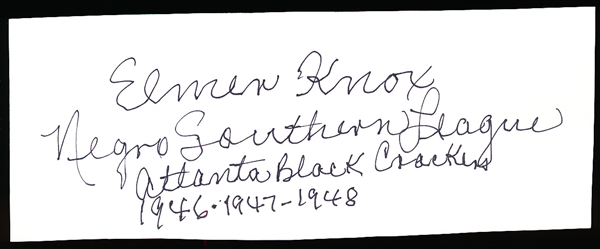 Elmer Knox
Negro Southern League
Atlanta Black Crackers
1946-1947-1948